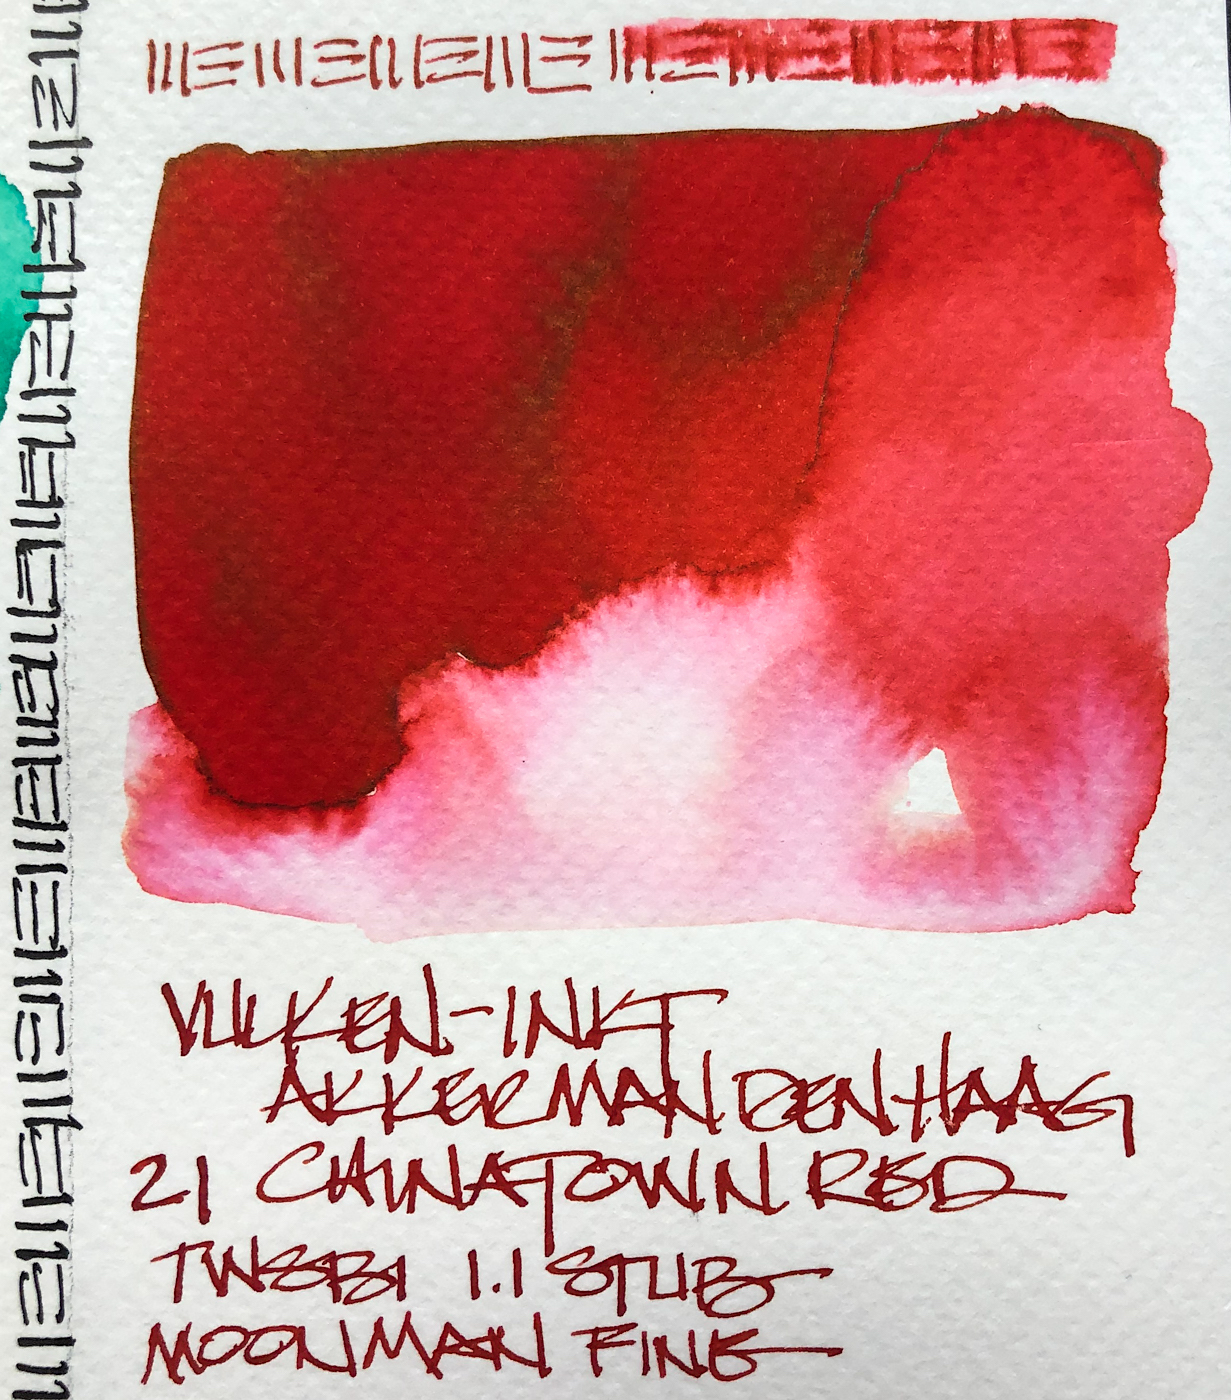 VULKEN-INKT
AKKERMAN DEN HAAG
21 CHINATOWN RED
TWSBI 1.1 STUB
MOONMAN FINE